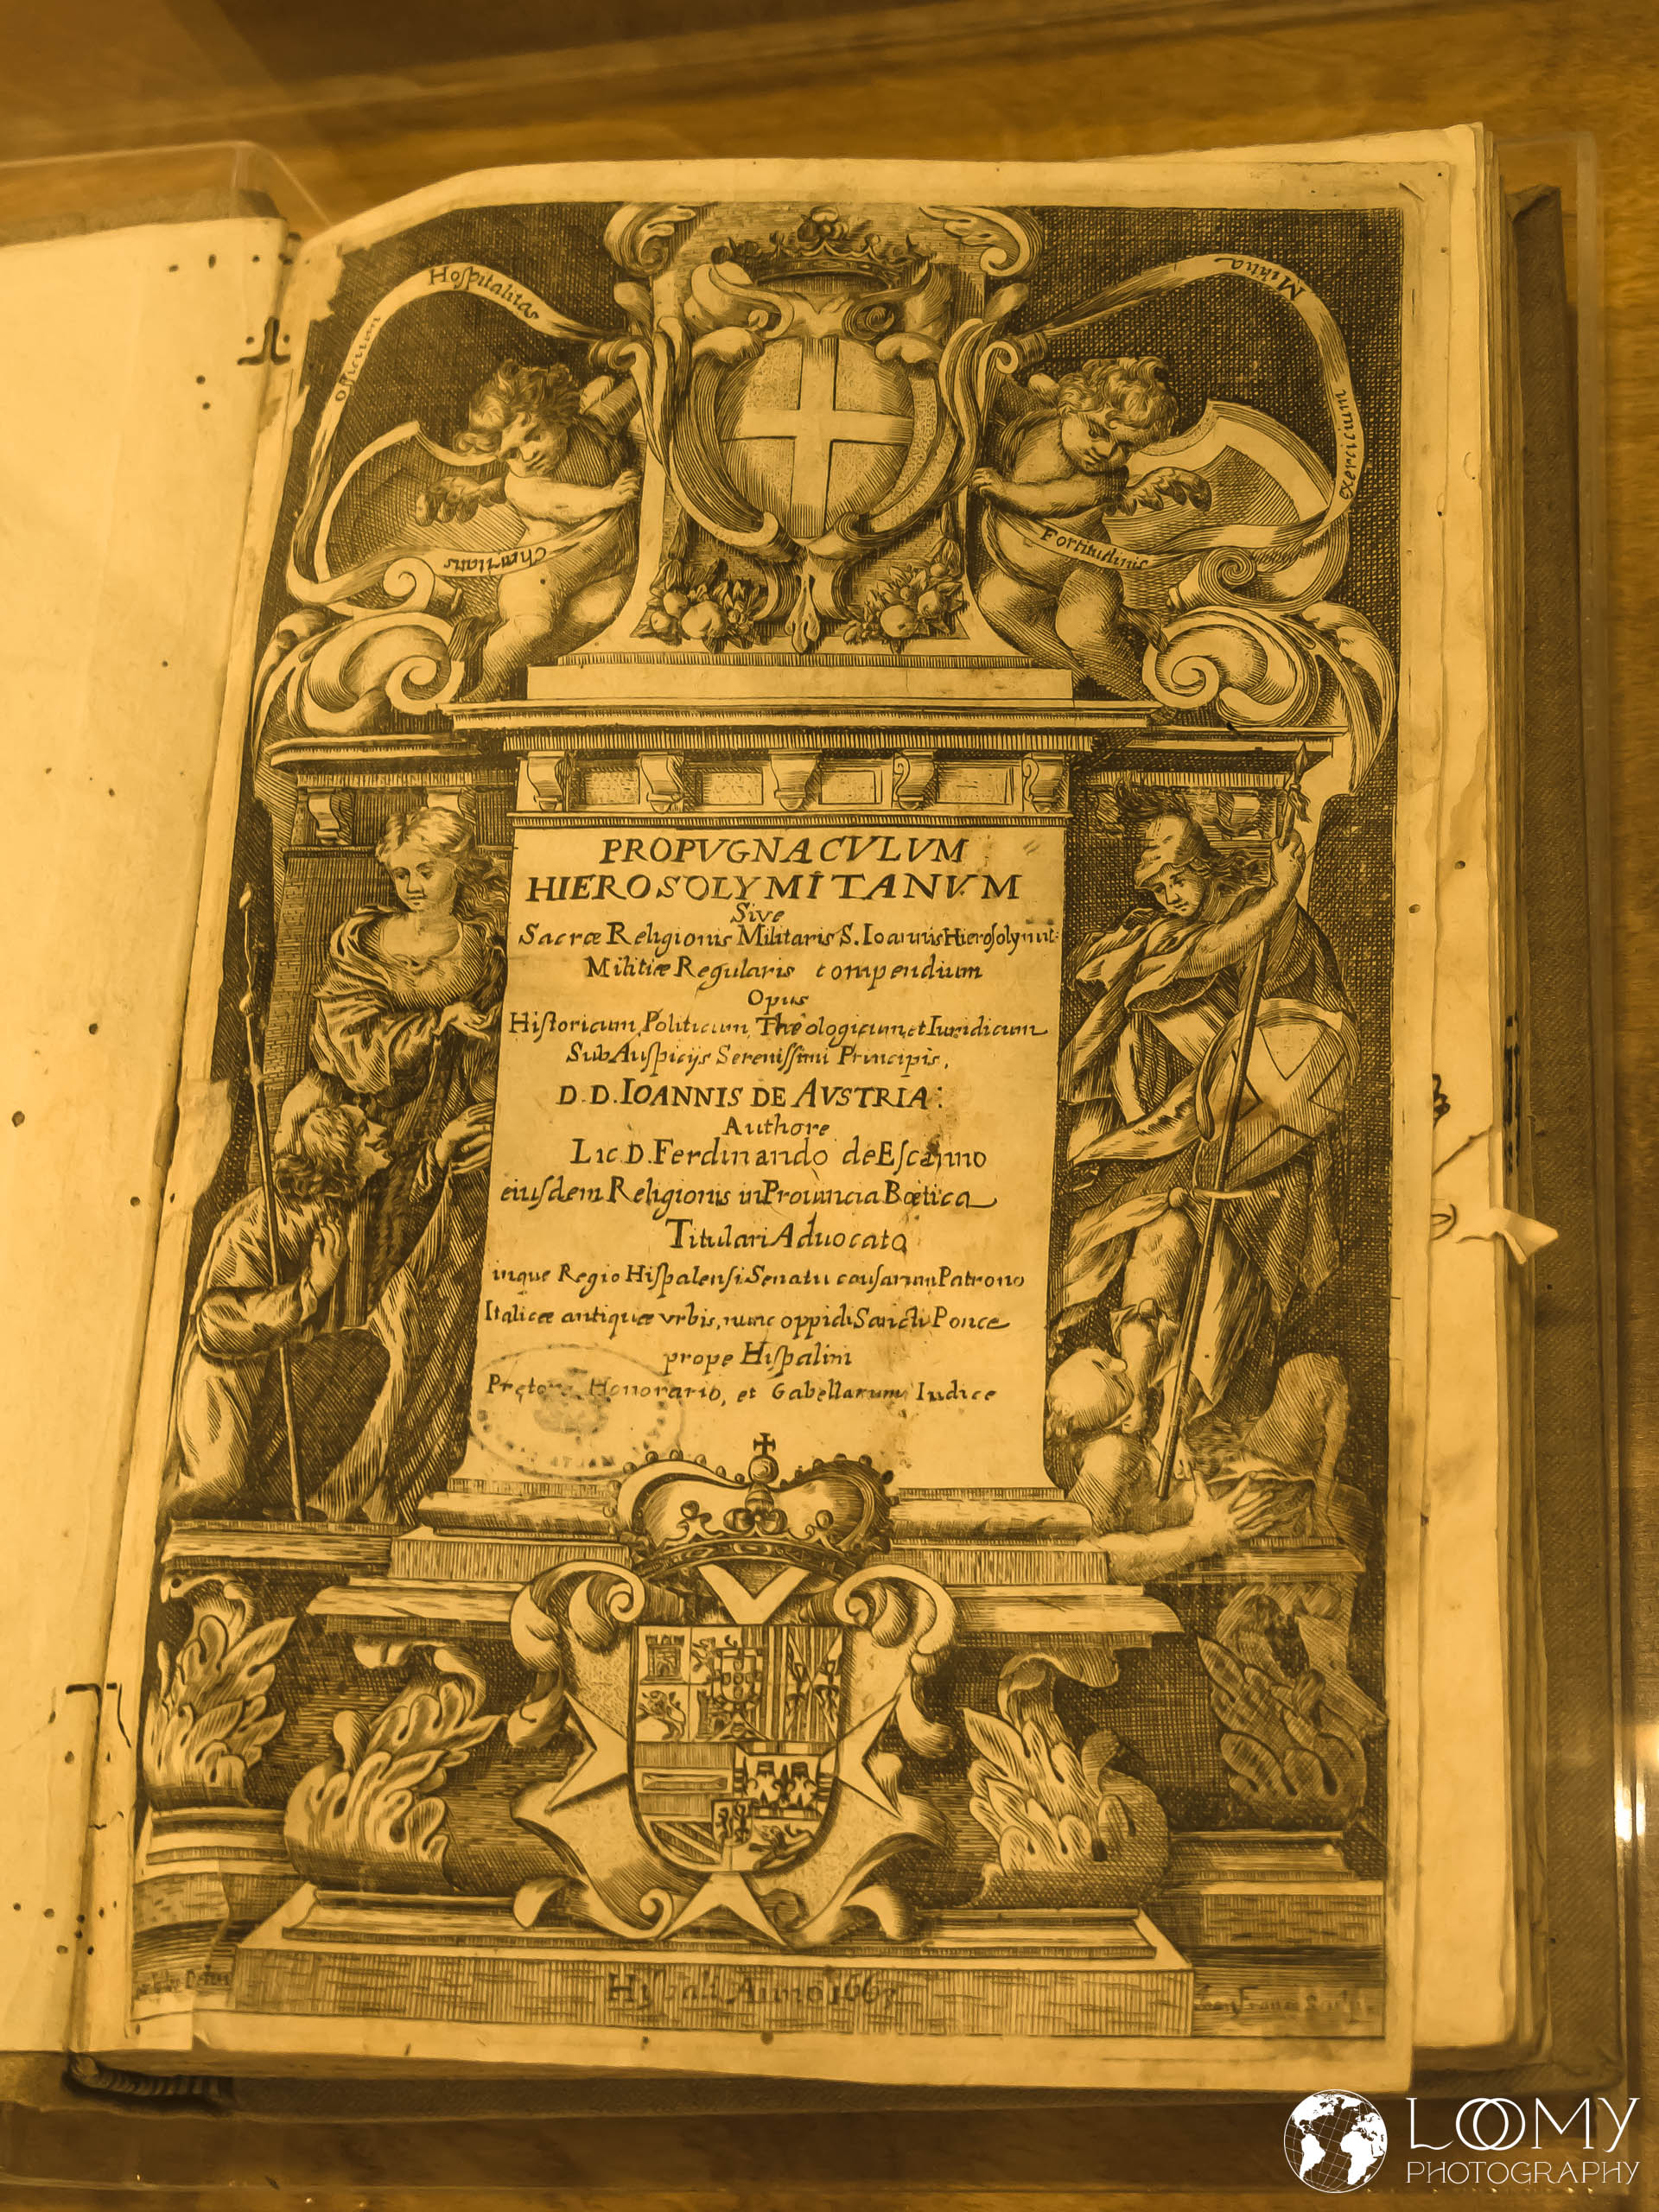 Officium
Hoſpitalitas
Chariatis
Militia
exercicium
Fortitudinis
PROPVGNACVLVM
HIEROSOLYMITANVM
Sive
Sacræ Religionis Militaris S. Ioannis Hieroſolymit:
Militiæ Regularis compendium
Opus
Hiſtoricum, Politicum, Theologicum, et Iuridicum
Sub Auſpicijs Sereniſſimi Principis,
D. D. IOANNIS DE AVSTRIA:
Authore
Lic. D. Ferdinando de Eſcaño
eiuſdem Religionis in Prouincia Bœtica
Titulari Aduocato
inque Regio Hiſpalenſi Senatu cauſarum Patrono
Italicæ antiquæ vrbis, nunc oppidi Sancti Ponce
prope Hiſpalim
Pretore Honorario, et Gabellarum Iudice
MALTA
Hiſpali Anno 166
LOOMY
PHOTOGRAPHY